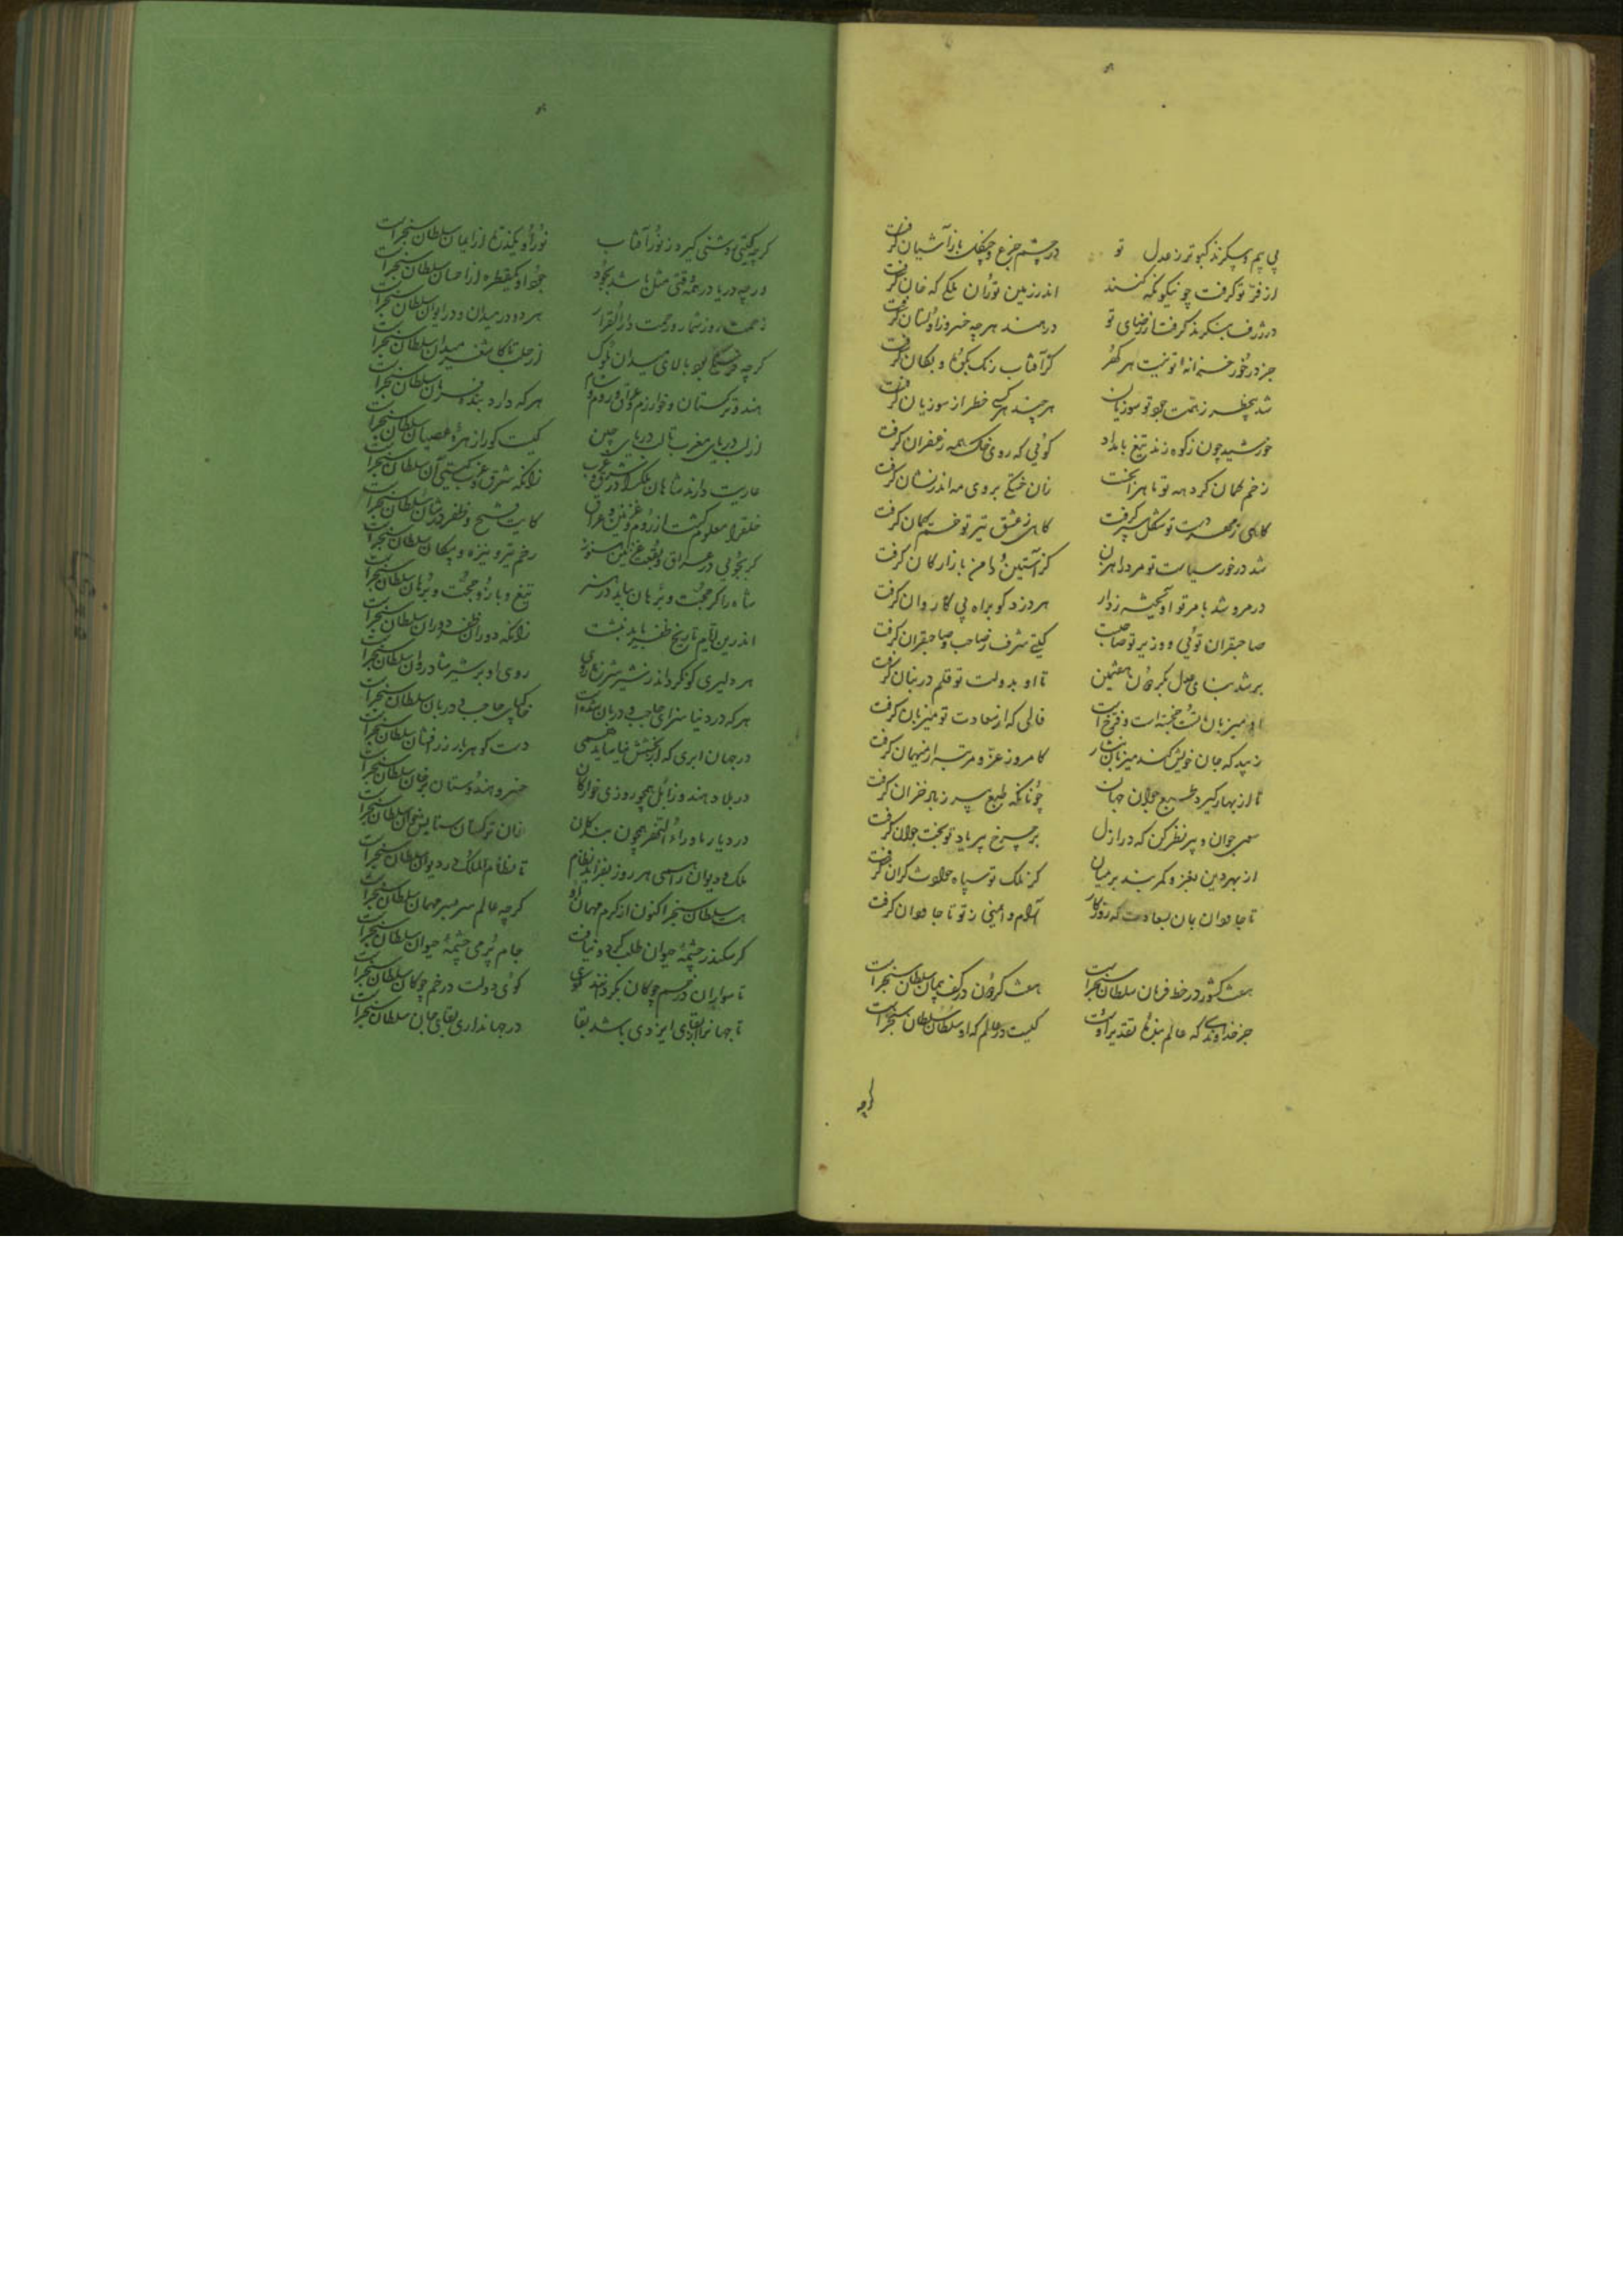 پی بیم و سپکرند کبوتر ز عدل تو در چشم چرغ و چنگل باز آشیان گرفت
از فرّ تو گرفت چو نیکو نگه کنند اندر زمین توران ملکی که خان گرفت
در ژرف بنگرند گرفت از رضای تو در هند هر چه خسرو زاولستان گرفت
جز در خور خزانهٔ تو نیست هر گهر کز آفتاب رنگ بکوه و بکان گرفت
شد بیخطر ز همت جود تو سوزیان هر چند هر کسی خطر از سوزیان گرفت
خورشید چون ز کوه زند تیغ بامداد کوئی که روی خاک همه زعفران گرفت
زخم کمان گروههٔ تو ماه را بخست زان خستگی بروی مه اندر نشان گرفت
گاهی ز مهر دست تو شکل سپر گرفت گاهی ز عشق تیر تو خم کمان گرفت
شد در خور سیاست تو مرد راهزن کز آستین و دامن بازارگان گرفت
در مرو شد بامر تو آویخته ز دار هر دزد کو براه پی کاروان گرفت
صاحبقران توئی و وزیر تو صاحبست گیتی شرف ز صاحب و صاحبقران گرفت
بر شد بنای عدل بگردون هفتمین تا او بدولت تو قلم در بنان گرفت
او میزبان تست خجسته است و فرّخ است فالی که از سعادت تو میزبان گرفت
زیبد که جان خویش کند میزبان نثار کامروز عزّ و مرتبه از میهمان گرفت
تا از بهار گیرد طبع جوان جهان چونانکه طبع پیر ز باد خزان گرفت
سوی جوان و پیر نظر کن که در ازل بر چرخ پیر یاد تو بخت جوان گرفت
از بهر دین بغز و کمر بند بر میان کز ملک تو سپاه حوادث کران گرفت
تا جاودان بمان بسعادت که روزگار آرام و ایمنی ز تو تا جاودان گرفت
هفت کشور در خط فرمان سلطان سنجر است هفت گردون در کف پیمان سلطان سنجر است
جز خداوندی که عالم بندهٔ تقدیر اوست کیست در عالم که او سلطان سلطان سنجر است
گرچه
گرچه گیتی روشنی گیرد ز نور آفتاب نور او یکذرّه از ایمان سلطان سنجر است
ورچه دریا در همه وقتی مثل باشد بجود جود او یکقطره از احسان سلطان سنجر است
زحمت روز شمار و رحمت دار القرار هر دو در میدان و در ایوان سلطان سنجر است
گرچه فرسنگی بود بالای میدان ملوک از حلب تا کاشغر میدان سلطان سنجر است
هند و ترکستان و خوارزم و عراق و روم و شام هر که دارد بندهٔ فرمان سلطان سنجر است
از لب دریای مغرب تا لب دریای چین کیست کو را زهرهٔ عصیان سلطان سنجر است
عاریت دارند شاهان ملک را در شرق و غرب زانکه شرق و غرب گیتی آن سلطان سنجر است
خلق را معلوم گشت از روم و غزنین و عراق کایت فتح و ظفر در شأن سلطان سنجر است
گر بجوئی در عراق و بقعت غزنین هنوز زخم تیر و نیزه و پیکان سلطان سنجر است
شاه را گر حجّت و برهان بباید در هنر تیغ و بازو حجّت و برهان سلطان سنجر است
اندرین ایّام تاریخ ظفر باید نبشت زانکه دوران ظفر دوران سلطان سنجر است
هر دلیری کو نگرداند ز شیر شرزه روی روی او بر شیر شادروان سلطان سنجر است
هر که در دنیا سزای حاجب و دربان شده است خاکپای حاجب و دربان سلطان سنجر است
در جهان ابری که از بخشش نیاساید همی دست گوهربار زر افشان سلطان سنجر است
در بلاد هند و زابل همچو روزی خوارگان خسرو هندوستان بر خوان سلطان سنجر است
در دیار ماوراءالنهر همچون بندگان خان ترکستان ستایش خوان سلطان سنجر است
ملک و دیوان را همی هر روز بفزاید نظام تا نظام الملک در دیوان سلطان سنجر است
هست سلطان سنجر اکنون از کرم مهمان او گرچه عالم سر بسر مهمان سلطان سنجر است
گر سکندر چشمهٔ حیوان طلب کرد و نیافت جام پر می چشمهٔ حیوان سلطان سنجر است
تا سواران در خم چوگان بگردانند گوی گوی دولت در خم چوگان سلطان سنجر است
تا جهانرا از بقای ایزدی باشد بقا در جهانداری بقای جان سلطان سنجر است